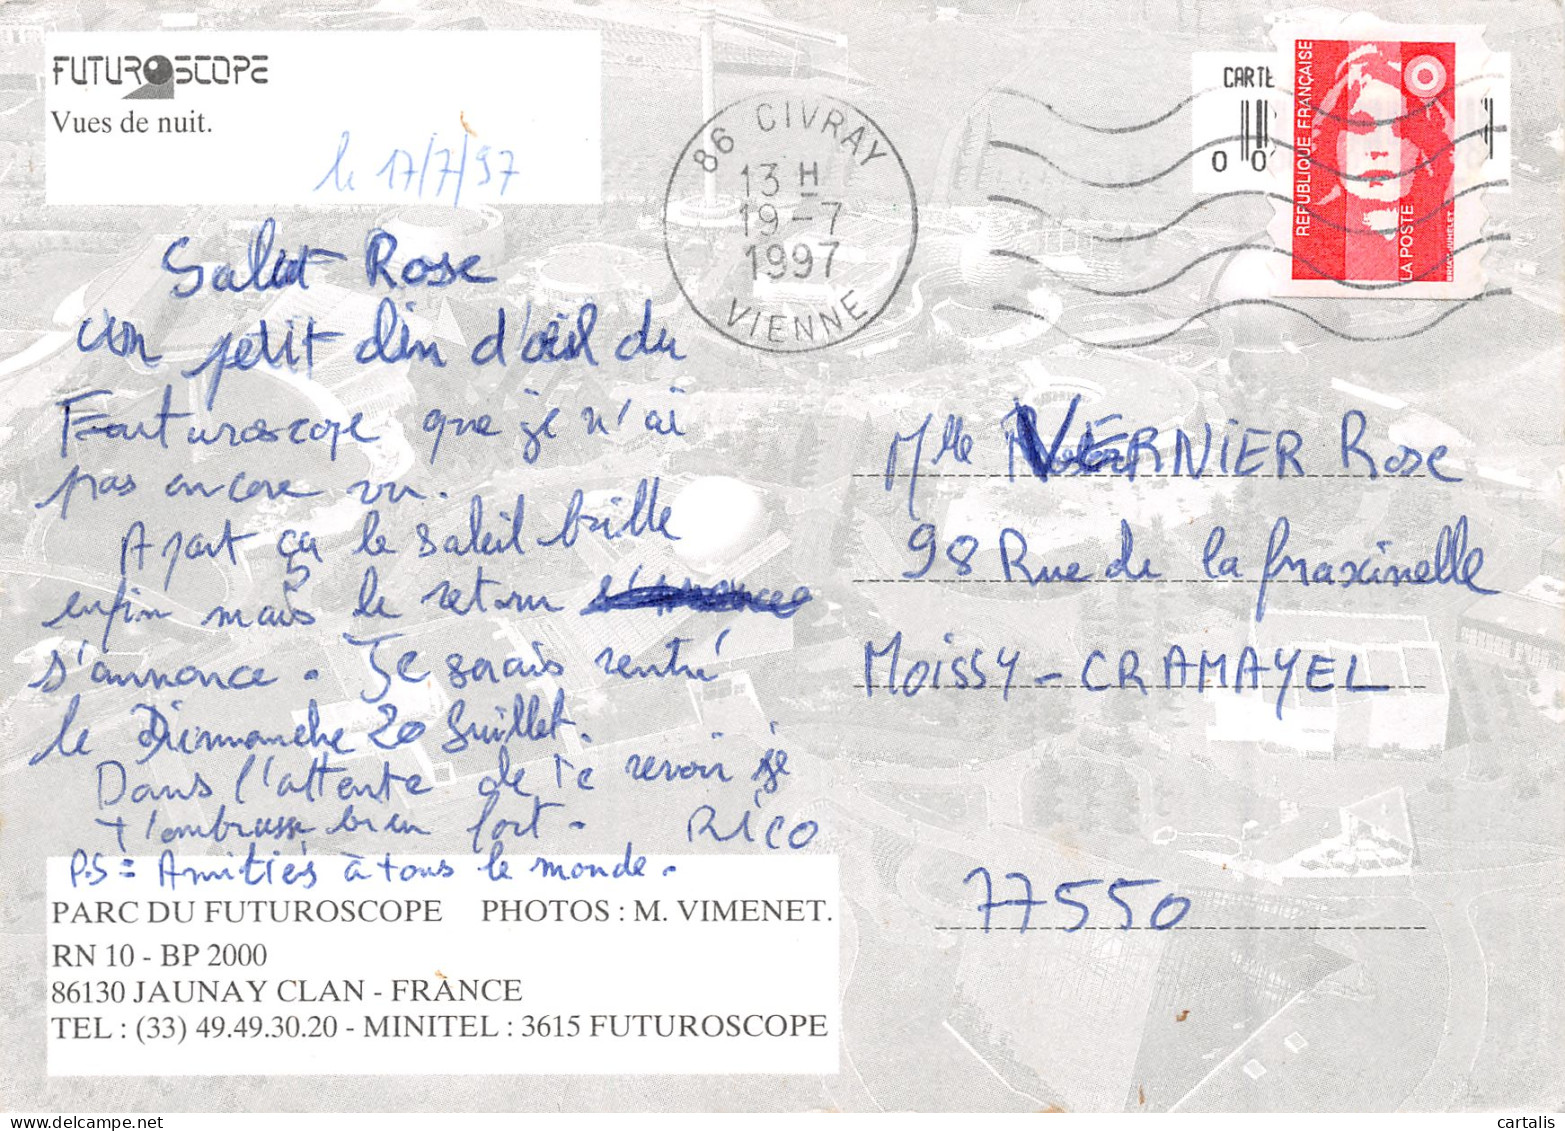 FUTUROSCOPE
Vues de nuit.
le 17/7/97
Salut Rose
un petit clin d'œil du
Futuroscope que je n'ai
pas encore vu.
Apart ça le soleil brille
enfin mais le retour
s'annonce. Je serais rentré
le Dimanche 20 Juillet.
Dans l'attente de te revoir je
t'embrasse bien fort. RICO
P.S = Amitiés à tous le monde.
PARC DU FUTUROSCOPE PHOTOS : M. VIMENET.
RN 10 - BP 2000
86130 JAUNAY CLAN - FRANCE
TEL : (33) 49.49.30.20 - MINITEL : 3615 FUTUROSCOPE
86 CIVRAY
13 H
19-7
1997
VIENNE
CARTE
0 0
REPUBLIQUE FRANÇAISE
LA POSTE
Mlle VERNIER Rose
98 Rue de la fraxinelle
MOISSY-CRAMAYEL
77550
cartalis